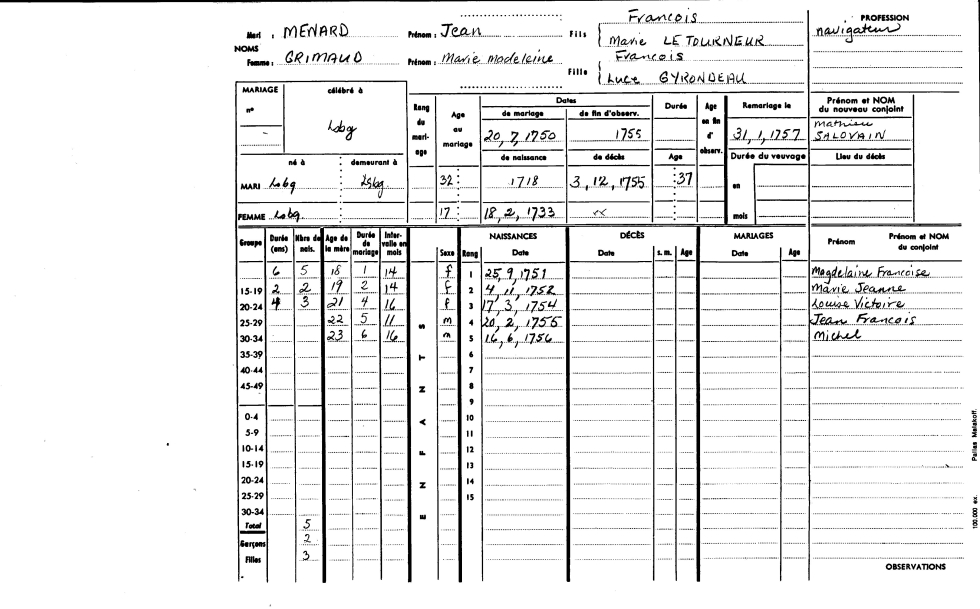 Mari : MENARD Prénom : Jean Fils { Francois
Marie LE TOURNEUR
PROFESSION
navigateur
NOMS
Femme : GRIMAUD Prénom : Marie Madeleine Fille { Francois
Luce GYRONDEAU
MARIAGE célébré à
n°
Lsbg
Rang du mariage
Age au mariage
Dates
de mariage de fin d'observ.
20, 7, 1750 1755
Durée
Age en fin d' observ.
Remariage le
31, 1, 1757
Prénom et NOM du nouveau conjoint
Mathieu
SALOVAIN
né à demeurant à
de naissance de décès Age
Durée du veuvage
Lieu du décès
MARI Lsbg Lsbg 32 1718 3, 12, 1755 37
en
FEMME Lsbg 17 18, 2, 1733 xx
mois
Groupe Durée (ans) Nbre de nais. Age de la mère Durée de mariage Intervalle en mois
ENFANTS
Sexe Rang
NAISSANCES
Date
DÉCÈS
Date s. m. Age
MARIAGES
Date Age
Prénom Prénom et NOM du conjoint
6 5 18 1 14 f 1 25 9, 1751 Magdelaine Francoise
15-19 2 2 19 2 14 f 2 4, 11, 1752 Marie Jeanne
20-24 4 3 21 4 16 f 3 17, 3, 1754 Louise Victoire
25-29 22 5 11 m 4 20, 2, 1755 Jean Francois
30-34 23 6 16 m 5 16, 6, 1756 Michel
35-39 6
40-44 7
45-49 8
9
0-4 10
5-9 11
10-14 12
15-19 13
20-24 14
25-29 15
30-34
Total 5
Garçons 2
Filles 3
OBSERVATIONS
100.000 ex. Pallas Malakoff.